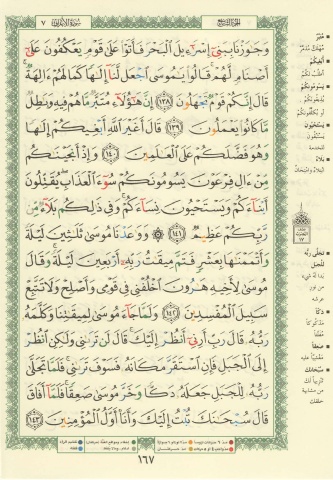 سُورَةُ الأَعْرَافِ ٧
الجُزْءُ التَّاسِعُ
وَجَٰوَزْنَا بِبَنِىٓ إِسْرَٰٓءِيلَ ٱلْبَحْرَ فَأَتَوْا۟ عَلَىٰ قَوْمٍ يَعْكُفُونَ عَلَىٰٓ
أَصْنَامٍ لَّهُمْ ۚ قَالُوا۟ يَٰمُوسَى ٱجْعَل لَّنَآ إِلَٰهًا كَمَا لَهُمْ ءَالِهَةٌ ۚ
قَالَ إِنَّكُمْ قَوْمٌ تَجْهَلُونَ ١٣٨ إِنَّ هَٰٓؤُلَآءِ مُتَبَّرٌ مَّا هُمْ فِيهِ وَبَٰطِلٌ
مَّا كَانُوا۟ يَعْمَلُونَ ١٣٩ قَالَ أَغَيْرَ ٱللَّهِ أَبْغِيكُمْ إِلَٰهًا
وَهُوَ فَضَّلَكُمْ عَلَى ٱلْعَٰلَمِينَ ١٤٠ وَإِذْ أَنجَيْنَٰكُم
مِّنْ ءَالِ فِرْعَوْنَ يَسُومُونَكُمْ سُوٓءَ ٱلْعَذَابِ ۖ يُقَتِّلُونَ
أَبْنَآءَكُمْ وَيَسْتَحْيُونَ نِسَآءَكُمْ ۚ وَفِى ذَٰلِكُم بَلَآءٌ مِّن
رَّبِّكُمْ عَظِيمٌ ١٤١ ۞ وَوَٰعَدْنَا مُوسَىٰ ثَلَٰثِينَ لَيْلَةً
وَأَتْمَمْنَٰهَا بِعَشْرٍ فَتَمَّ مِيقَٰتُ رَبِّهِۦٓ أَرْبَعِينَ لَيْلَةً ۚ وَقَالَ
مُوسَىٰ لِأَخِيهِ هَٰرُونَ ٱخْلُفْنِى فِى قَوْمِى وَأَصْلِحْ وَلَا تَتَّبِعْ
سَبِيلَ ٱلْمُفْسِدِينَ ١٤٢ وَلَمَّا جَآءَ مُوسَىٰ لِمِيقَٰتِنَا وَكَلَّمَهُۥ
رَبُّهُۥ قَالَ رَبِّ أَرِنِىٓ أَنظُرْ إِلَيْكَ ۚ قَالَ لَن تَرَىٰنِى وَلَٰكِنِ ٱنظُرْ
إِلَى ٱلْجَبَلِ فَإِنِ ٱسْتَقَرَّ مَكَانَهُۥ فَسَوْفَ تَرَىٰنِى ۚ فَلَمَّا تَجَلَّىٰ
رَبُّهُۥ لِلْجَبَلِ جَعَلَهُۥ دَكًّا وَخَرَّ مُوسَىٰ صَعِقًا ۚ فَلَمَّآ أَفَاقَ
قَالَ سُبْحَٰنَكَ تُبْتُ إِلَيْكَ وَأَنَا۠ أَوَّلُ ٱلْمُؤْمِنِينَ ١٤٣
١٦٧